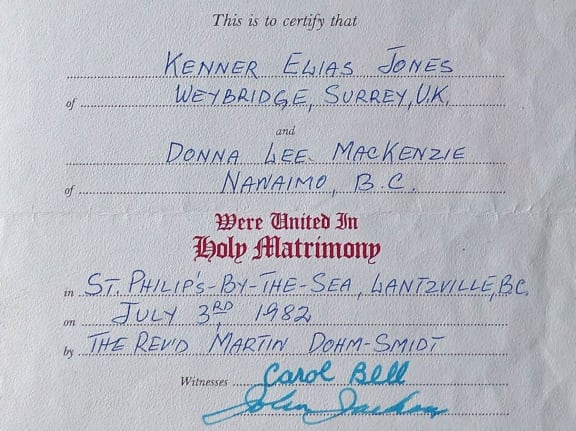 This is to certify that
KENNER ELIAS JONES
of WEYBRIDGE, SURREY, U.K.
and
DONNA LEE MACKENZIE
of NANAIMO, B.C.
Were United In
Holy Matrimony
in ST. PHILIP'S-BY-THE-SEA, LANTZVILLE, BC
on JULY 3RD 1982
by THE REV'D MARTIN DOHM-SMIDT
Witnesses Carol Bell
John Jackson